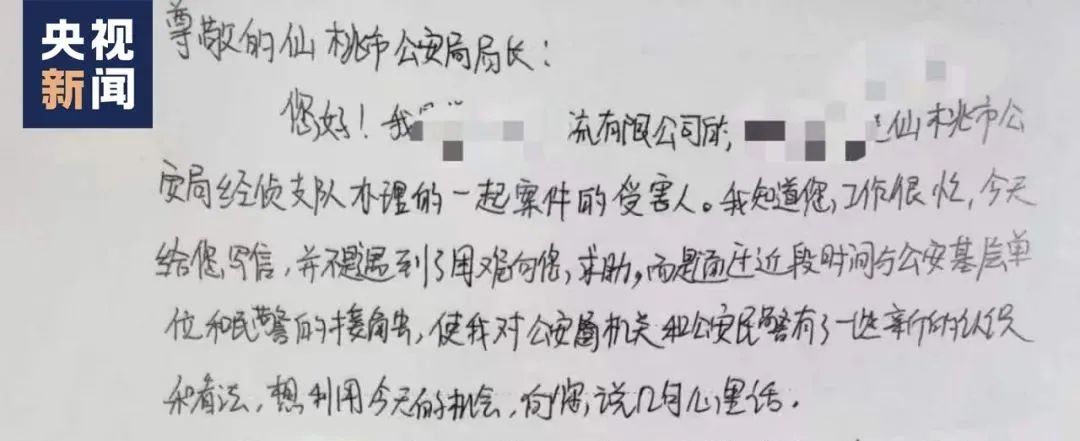 央视
新闻
尊敬的仙桃市公安局局长：
您好！我 流有限公司的, 仙桃市公
安局经侦支队办理的一起案件的受害人。我知道您工作很忙,今天
给您写信,并不是遇到了困难向您求助,而是通过近段时间与公安基层单
位和民警的接触,使我对公安机关和公安民警有了一些新的认识
和看法,想利用今天的机会,向您说几句心里话.